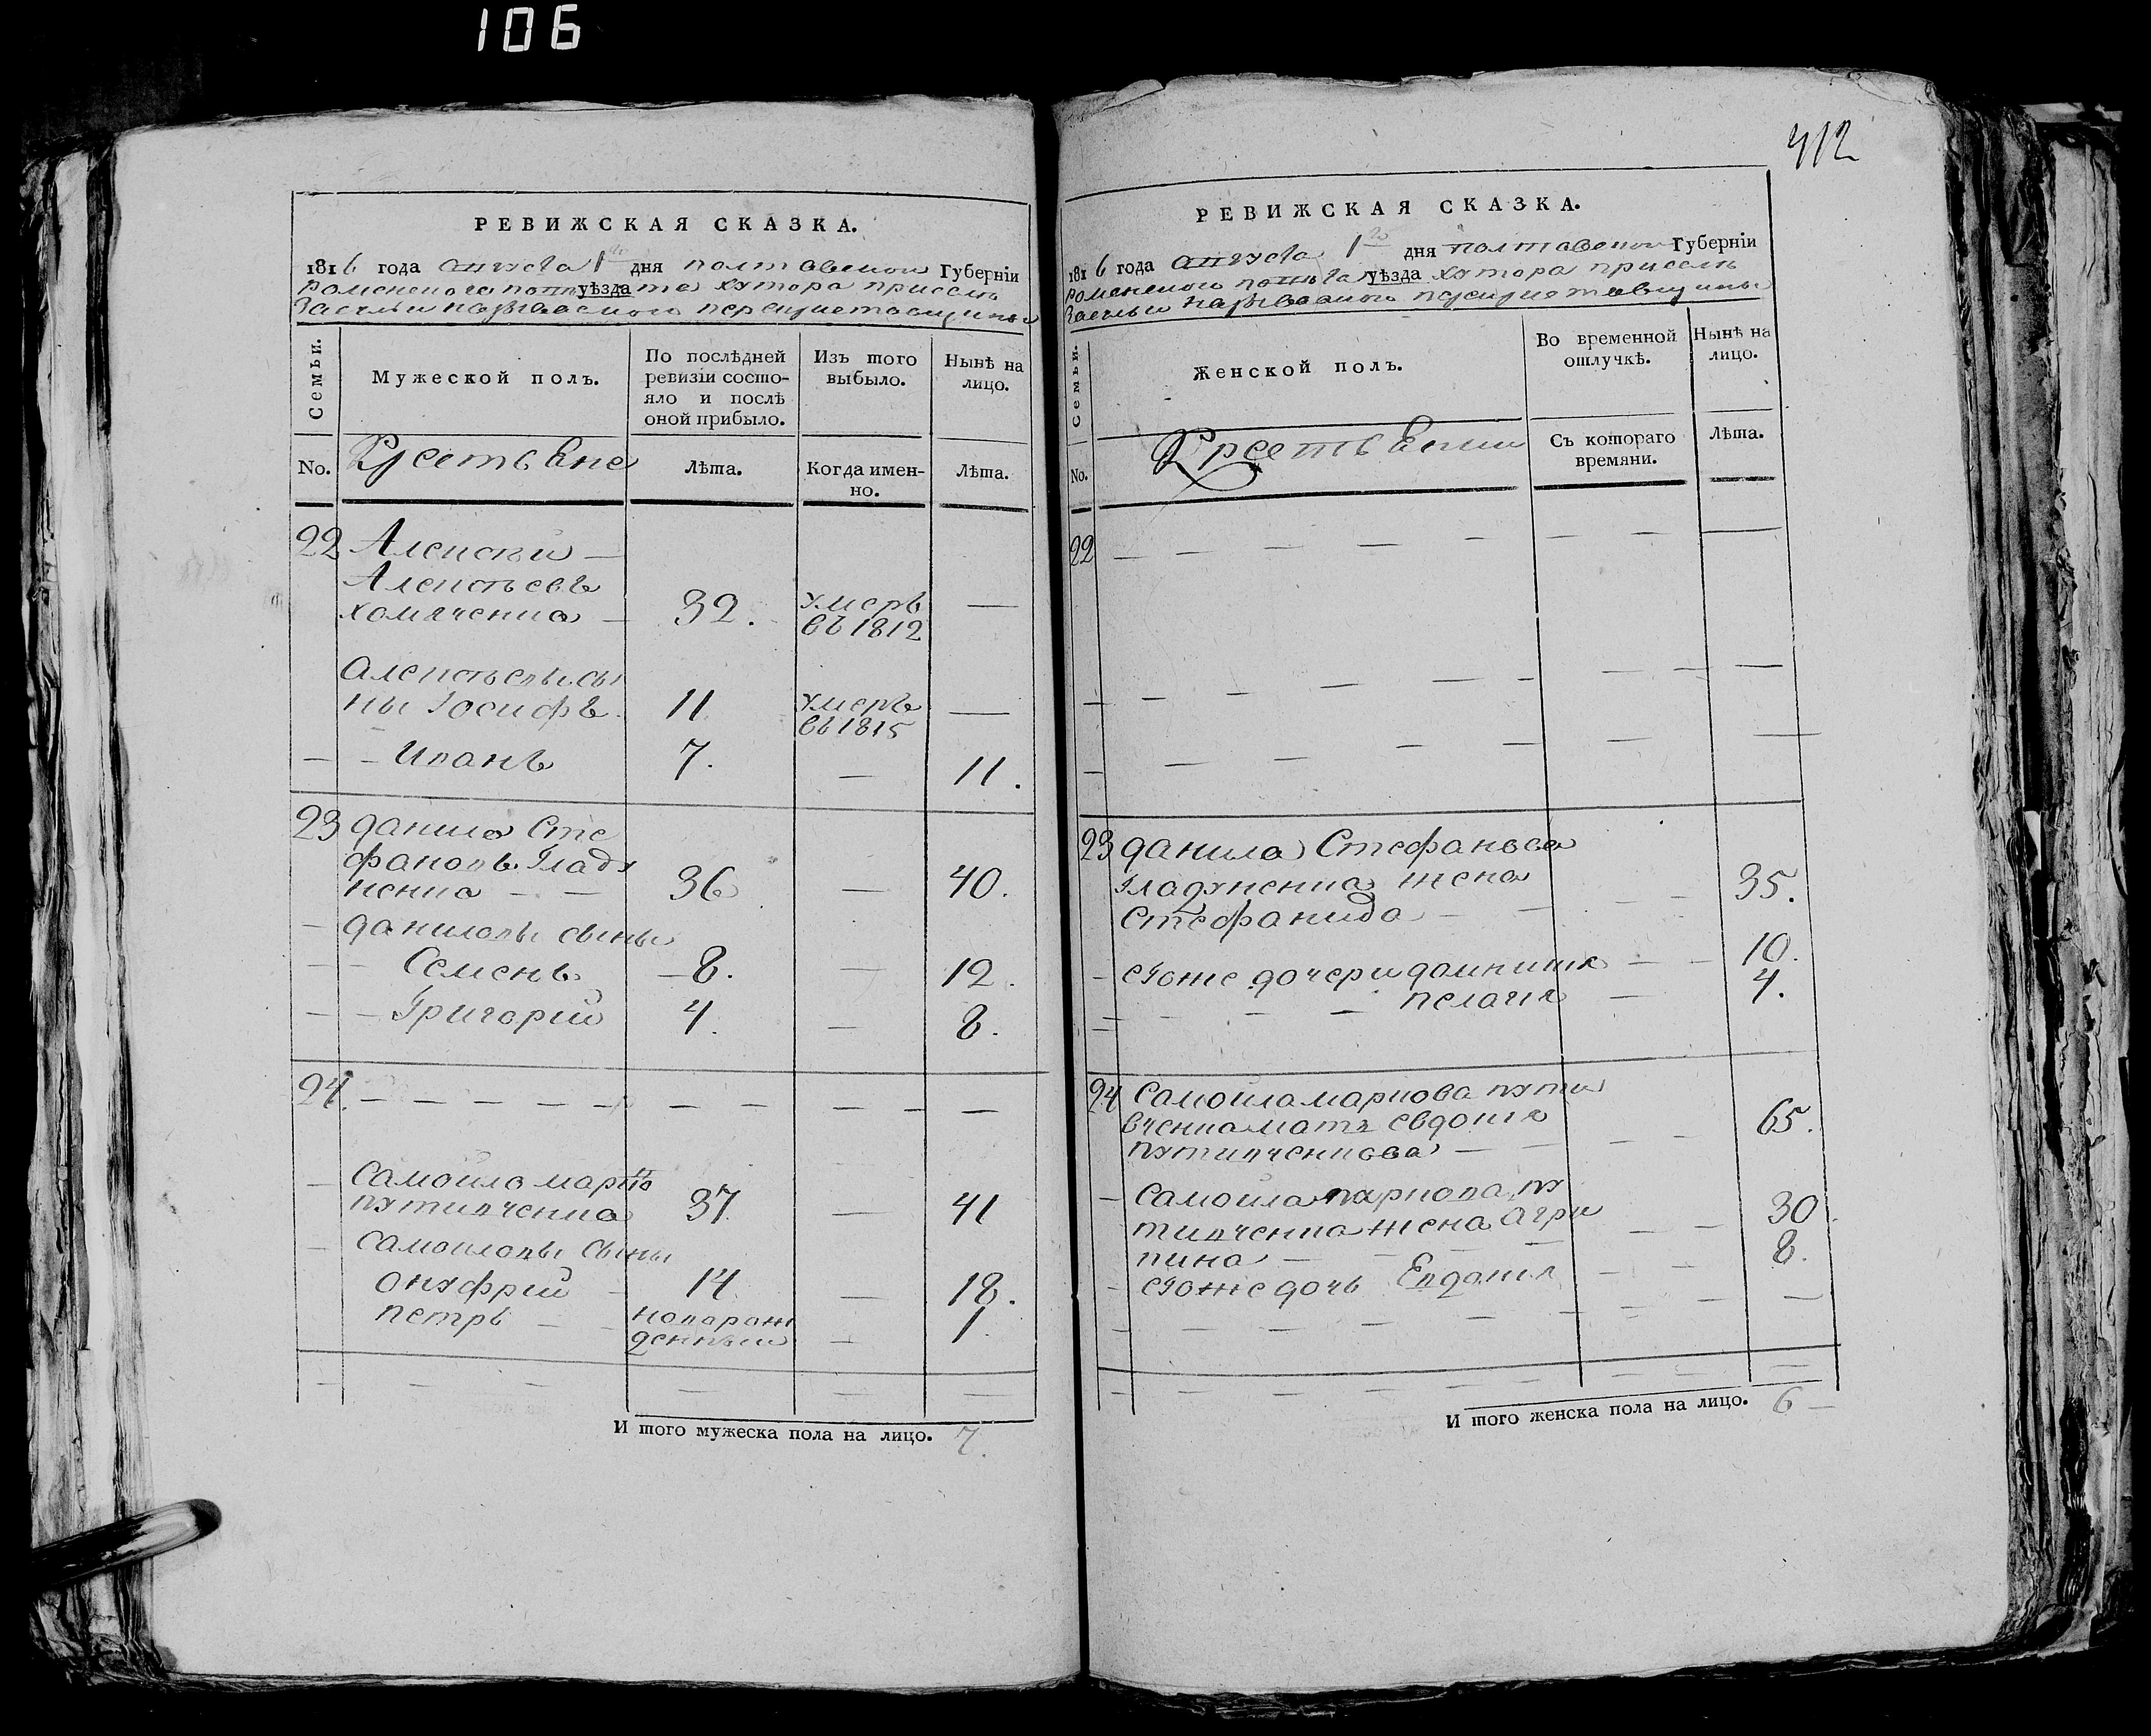 106
412
РЕВИЖСКАЯ СКАЗКА.
1816 года августа 1го дня полтавской Губерніи
Роменского повѣта уѣзда хутора присели
называемого
Семьи.
Мужеской полъ.
По послѣдней ревизіи состояло и послѣ оной прибыло.
Изъ того выбыло.
Нынѣ на лицо.
No.
Лѣта.
Когда именно.
Лѣта.
22 Алексѣй —
Алексѣевъ
хомяченко — 32. умеръ —
въ 1812
Алексѣевы сы
ны Іосифъ. 11. умеръ —
въ 1815
— — Иванъ 7. — 11.
23 данило Сте
фановъ Гладу
ненко — — 36 — 40.
— даниловы сыны
— — Семенъ — 8. — 12.
— — Григорий 4. — 8.
24. — — — — — — — — — —
— Самойло марко
путивченко 37 — 41
— Самойловы сыны
онуфрий — 14 — 18.
петръ — — новорож
денный — 1.
И того мужеска пола на лицо. 7.
РЕВИЖСКАЯ СКАЗКА.
1816 года августа 1го дня полтавской Губерніи
Роменского повѣта уѣзда хутора присели
называемого
Семьи.
Женской полъ.
Во временной отлучкѣ.
Нынѣ на лицо.
No.
Съ котораго времяни.
Лѣта.
22 — — — — — — — —
23 данила Стефанова
гладуненка жена
Стефанида — — — — 35.
— егоже дочери домникия — — 10.
— — — — пелагия — 4.
24 Самойла маркова пути
вченка мать евдокия
путивченкова — — — 65.
— Самойла маркова пу
тивченка жена агри
пина — — — — — 30.
— егоже дочь Евдокия — — 8.
И того женска пола на лицо. 6 —